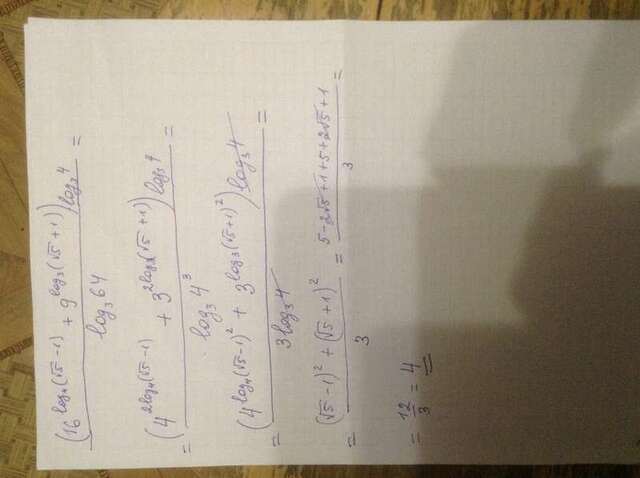 (16^(log₄(√5 - 1)) + 9^(log₃(√5 + 1))) log₃4 / log₃64 =
= (4^(2log₄(√5 - 1)) + 3^(2log₃(√5 + 1))) log₃4 / log₃4³ =
= (4^(log₄(√5 - 1)²) + 3^(log₃(√5 + 1)²)) log₃4 / 3log₃4 =
= ((√5 - 1)² + (√5 + 1)²) / 3 = (5 - 2√5 + 1 + 5 + 2√5 + 1) / 3 =
= 12/3 = 4